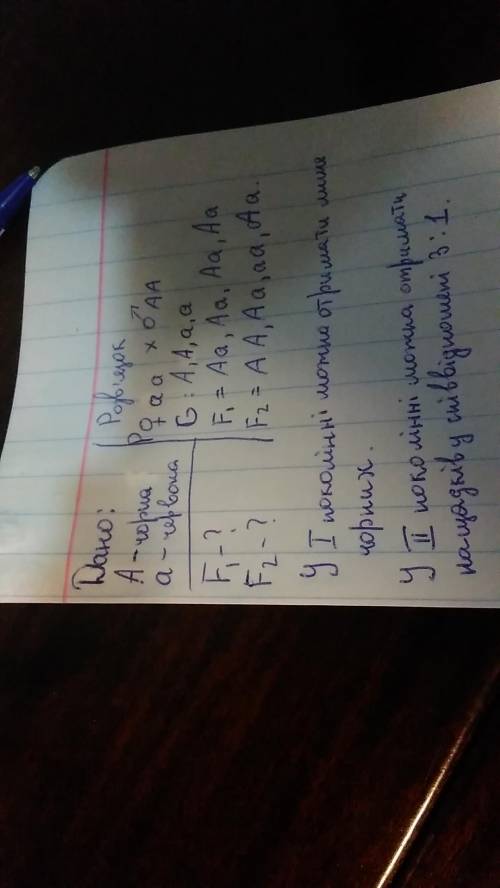 Дано:
А - чорна
а - червона
F₁ - ?
F₂ - ?
Розв'язок
P ♀ аа × ♂ АА
G: А, А, а, а
F₁ = Аа, Аа, Аа, Аа
F₂ = АА, Аа, аа, Аа.
У I поколінні можна отримати лише
чорних.
У II поколінні можна отримати
нащадків у співвідношені 3:1.